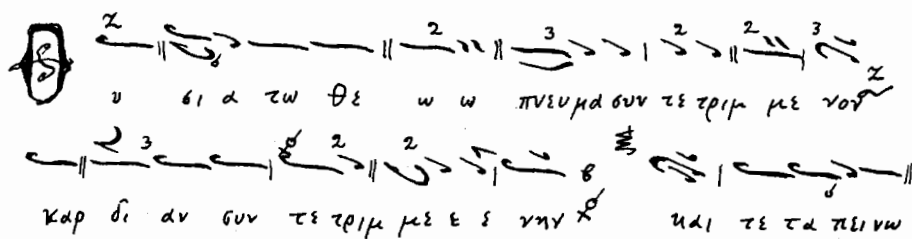 υ σι α τω θε ω ω πνευμα συν τε τριμ με νον
καρ δι αν συν τε τριμ με ε ε νην και τε τα πει νω